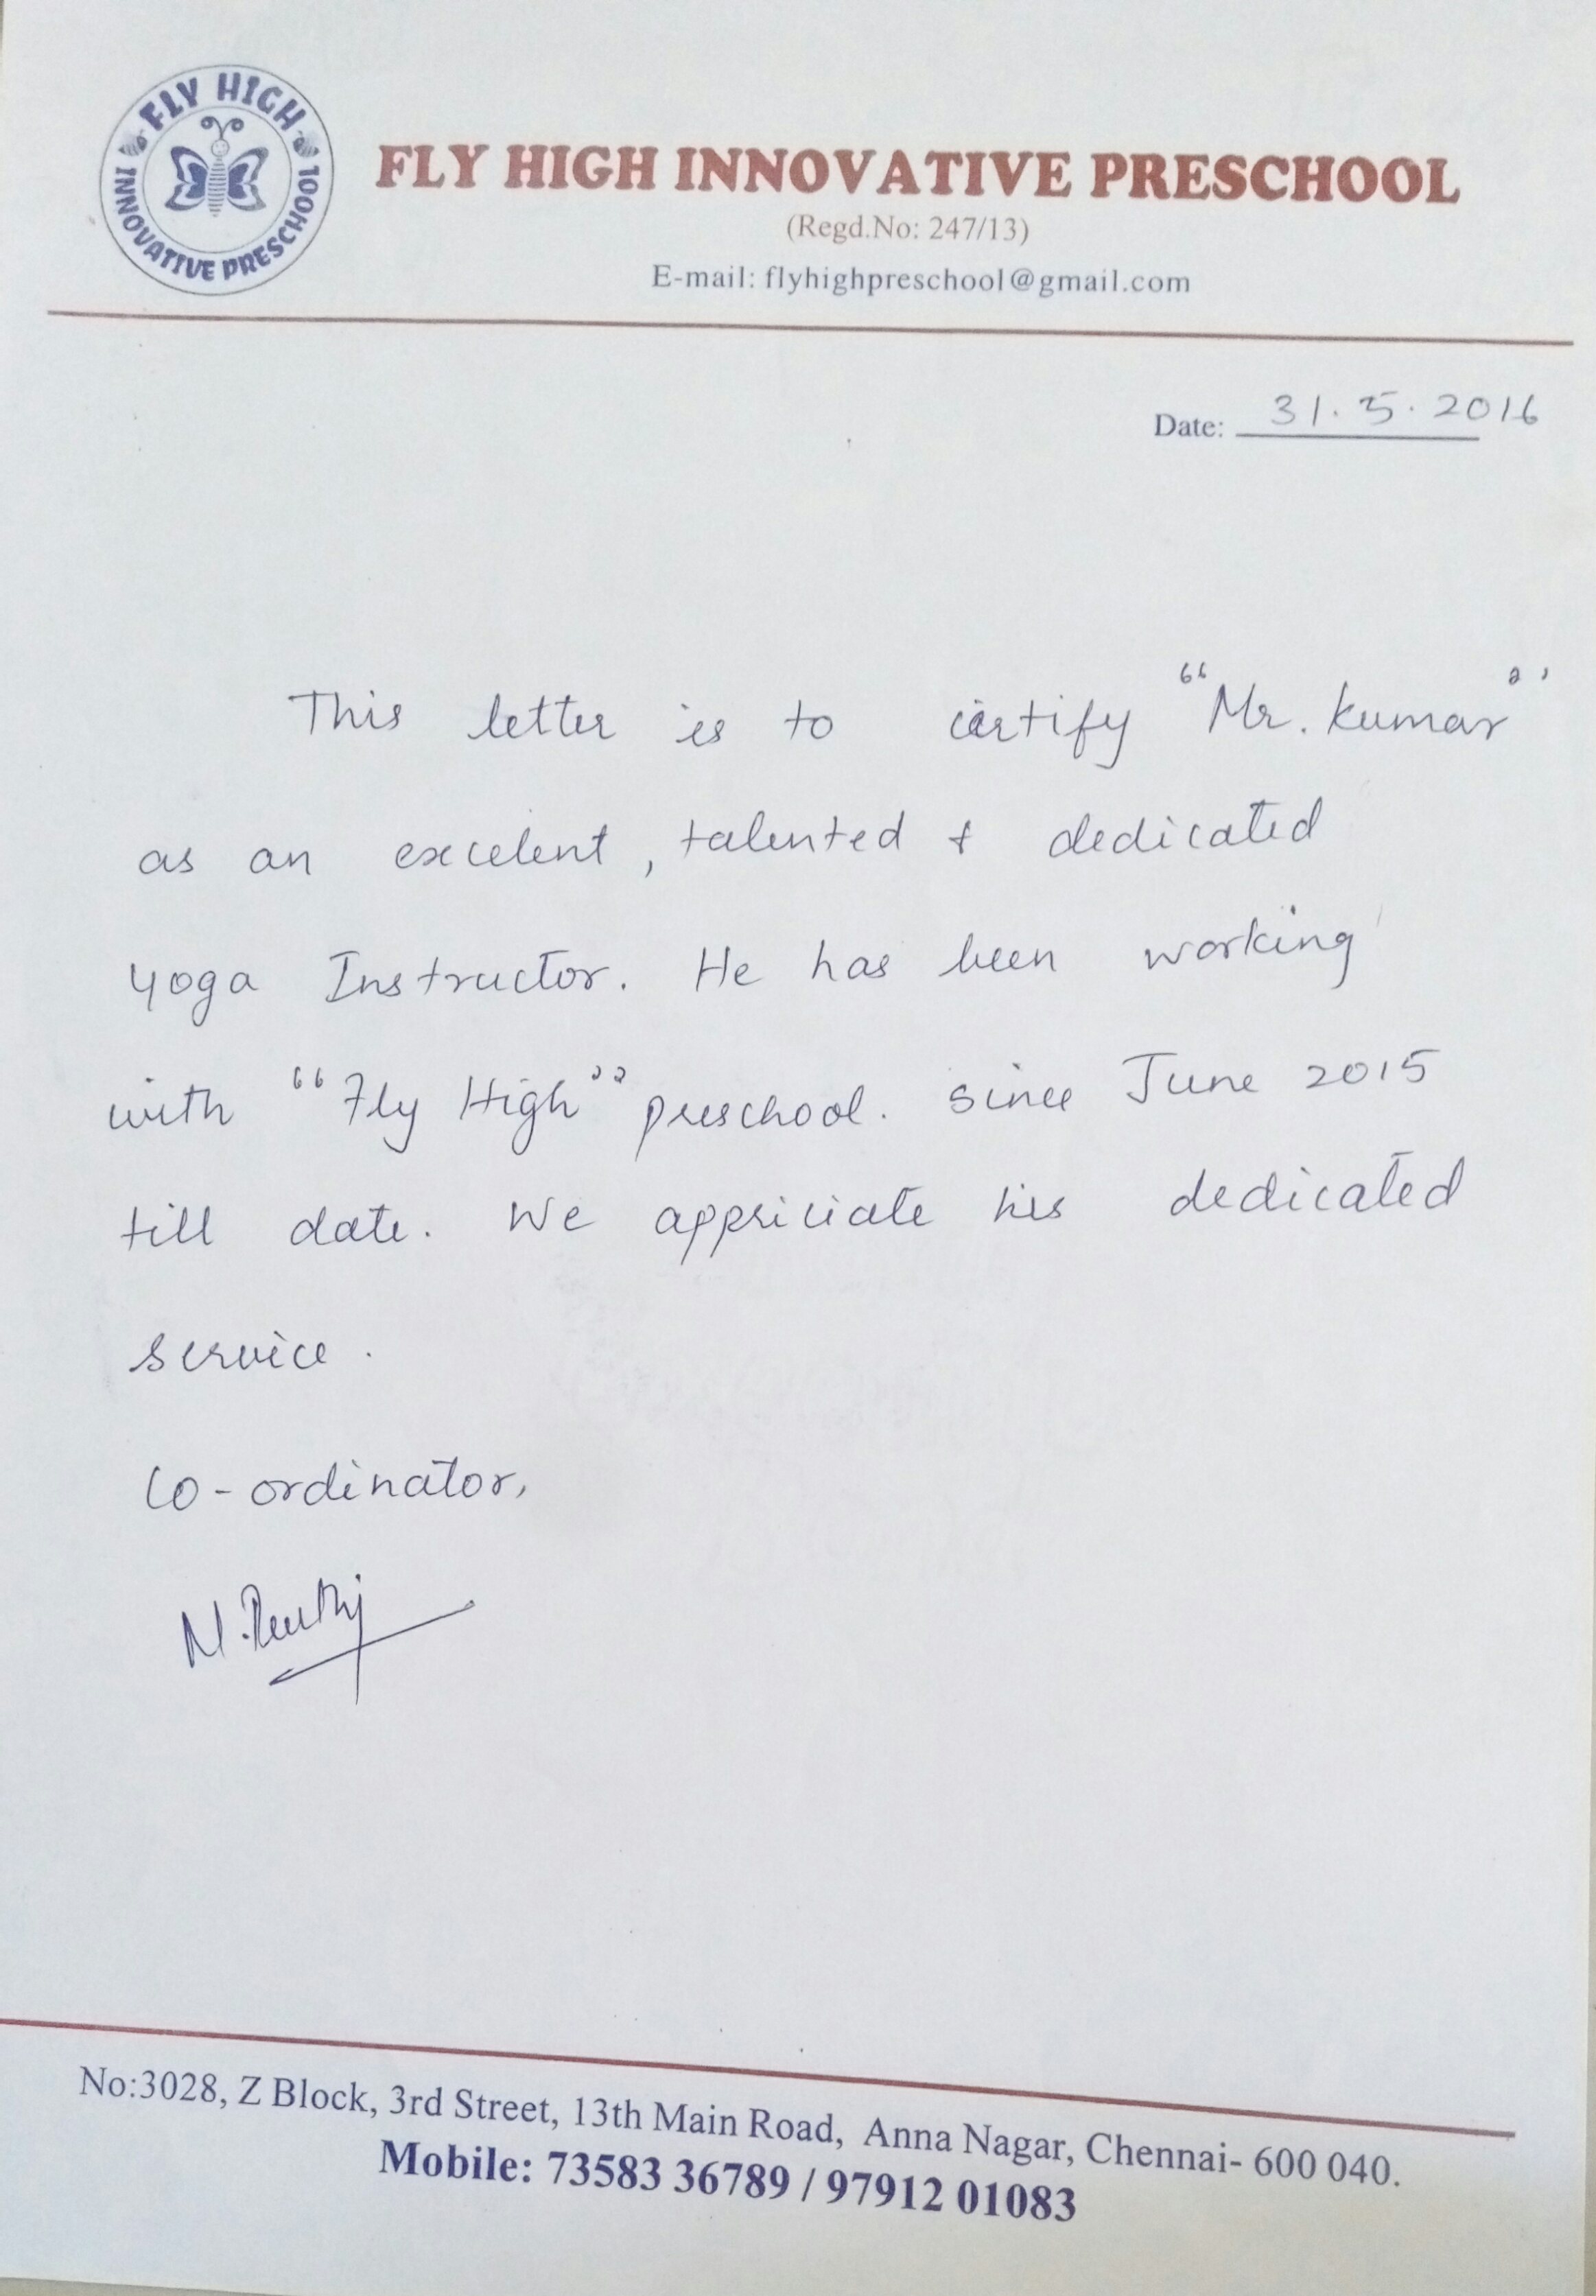 FLY HIGH
INNOVATIVE PRESCHOOL
FLY HIGH INNOVATIVE PRESCHOOL
(Regd.No: 247/13)
E-mail: flyhighpreschool@gmail.com
Date: 31.5.2016
This letter is to certify "Mr. Kumar"
as an excelent, talented & dedicated
yoga Instructor. He has been working
with "Fly High" preschool. since June 2015
till date. We appriciate his dedicated
service.
Co-ordinator,
No:3028, Z Block, 3rd Street, 13th Main Road, Anna Nagar, Chennai- 600 040.
Mobile: 73583 36789 / 97912 01083